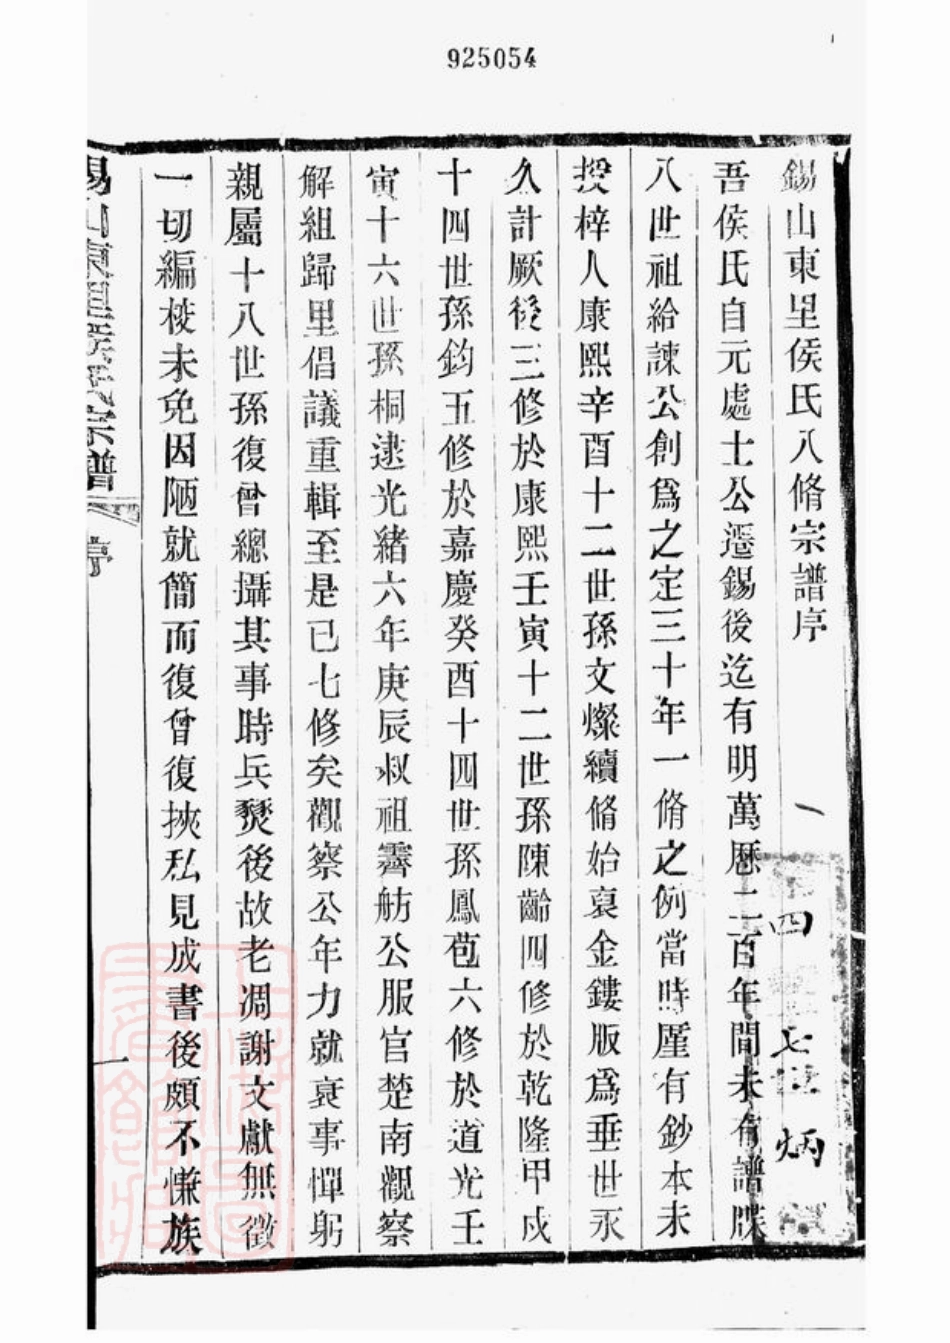 925054
錫山東里侯氏八脩宗譜序
吾侯氏自元處士公遷錫後迄有明萬厯二百年間未有譜牒
八世祖給諫公創爲之定三十年一脩之例當時厪有鈔本未
授梓人康熙辛酉十二世孫文燦續脩始裒金鏤版爲垂世永
久計厥後三修於康熙壬寅十二世孫陳齡四修於乾隆甲戍
十四世孫鈞五修於嘉慶癸酉十四世孫鳳苞六修於道光壬
寅十六世孫桐逮光緒六年庚辰叔祖霽舫公服官楚南觀察
解組歸里倡議重輯至是已七修矣觀察公年力就衰事憚躬
親屬十八世孫復曾總攝其事時兵燹後故老凋謝文獻無徵
一切編校未免因陋就簡而復曾復挾私見成書後頗不慊族
錫山東里侯氏宗譜 序 一